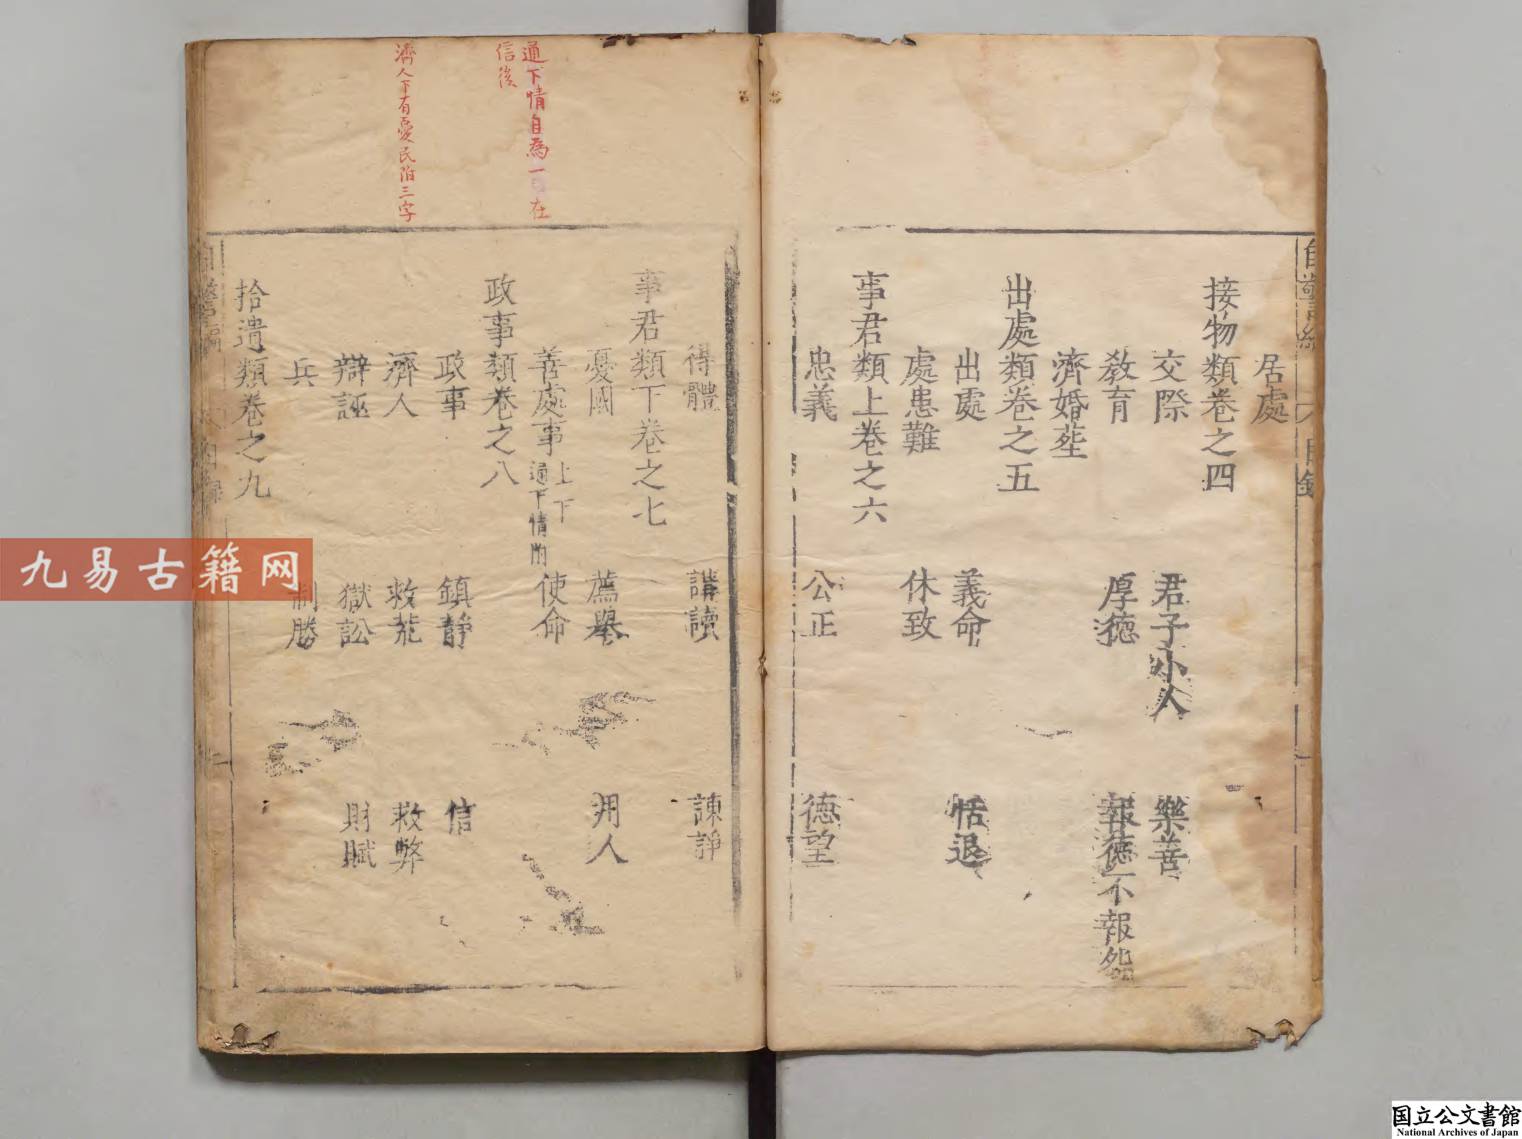 自警編 目録
居處
接物類卷之四
交際 君子小人 樂善
敎育 厚德 報德不報怨
濟婚塟
出處類卷之五
出處 義命 恬退
處患難 休致
事君類上卷之六
忠義 公正 德望
得體 講讀 諫諍
事君類下卷之七
憂國 薦舉 用人
善處事上下 通下情附 使命
政事類卷之八
政事 鎮靜 信
濟人 救荒 救弊
辯誣 獄訟 財賦
兵 制勝
拾遺類卷之九
自警編 目錄
通下情自為一 在
信後
濟人下有憂民附三字
九易古籍网
国立公文書館
National Archives of Japan